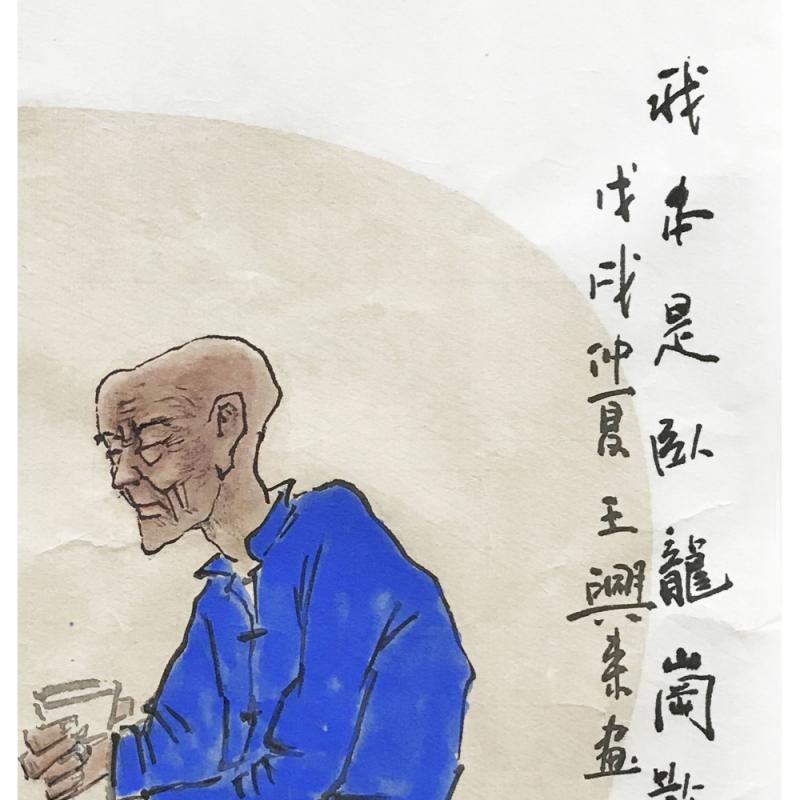 我本是臥龍崗散
戊戌仲夏王興来畫